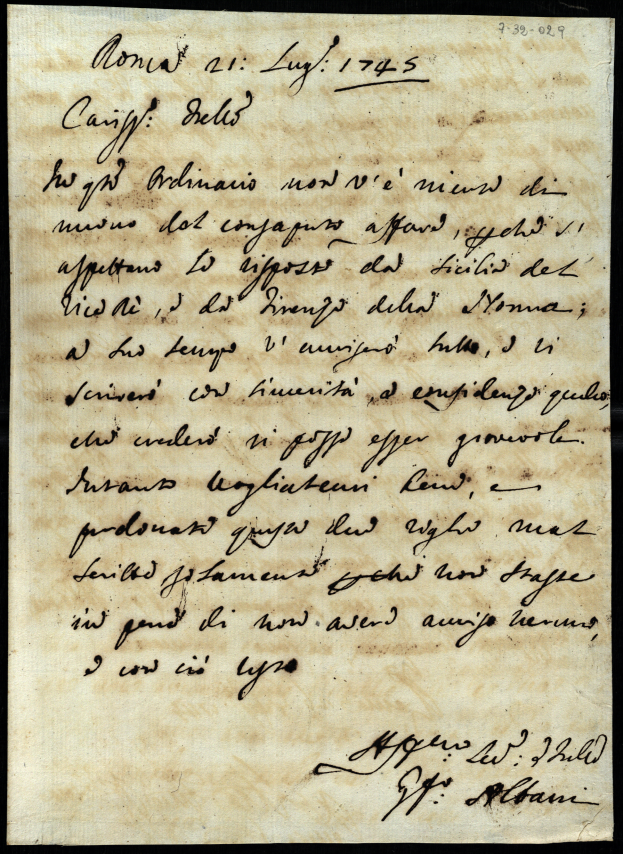 7-32-029
Roma 21: Lug.: 1745
Cariss.: Frello
In qto Ordinario non v'è niente di
nuovo del consaputo affare, pche s'
aspettano le risposte da Sicilia del
Vice Rè, e da Firenze della Nonna;
a suo tempo v'avviserò tutto, e vi
scriverò con sincerità, e confidenza quello,
che crederò vi possa esser giovevole.
Intanto vogliatemi bene, e
perdonate queste due righe mal
scritte solamente pche non staste
in pena di non avere avviso veruno,
e con ciò resto
Affmo Ser.: e Frello
Albani